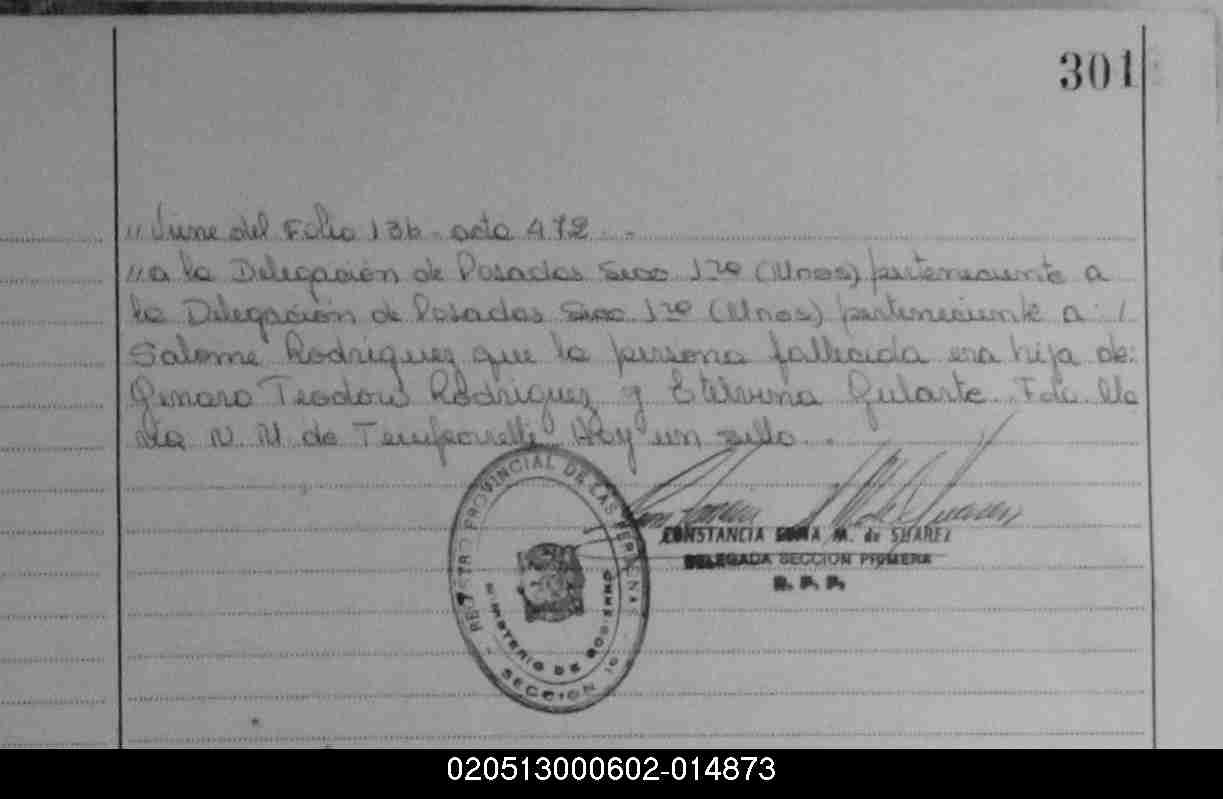 301
// Viene del Folio 136 - acta 472 . -
// a la Delegación de Posadas Secc 1ra (Unos) perteneciente a
la Delegación de Posadas Secc 1ra (Unos) perteneciente a : /
Salome Rodriguez que la persona fallecida era hija de:
Genaro Teodoro Rodriguez y Etelvina Gularte. Fdo.
N. M. de Temporelli. Hay un sello .
REGISTRO PROVINCIAL DE LAS PERSONAS
MINISTERIO DE GOBIERNO
SECCION 1a
CONSTANCIA M. de SUAREZ
DELEGADA SECCION PRIMERA
R. P. P.
020513000602-014873